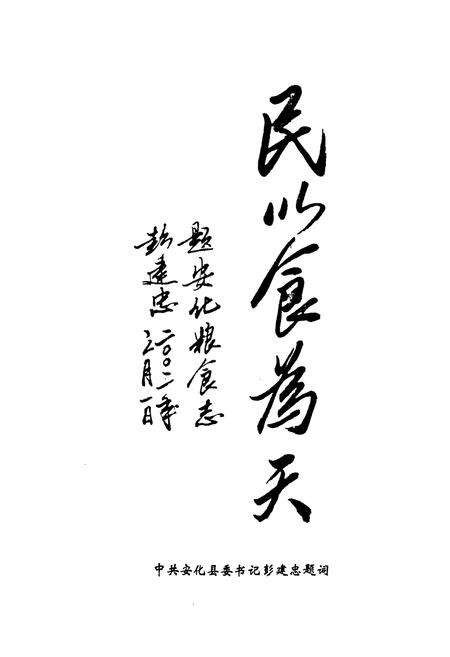 民以食為天
题安化粮食志
彭建忠 二〇〇二年
三月一日
中共安化县委书记彭建忠题词